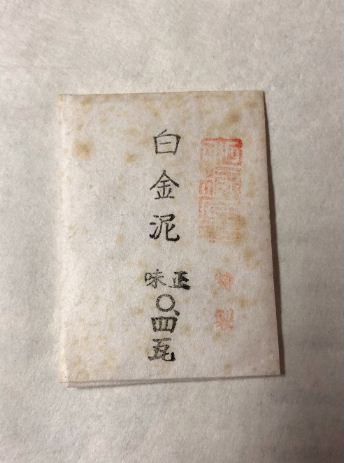 特製
白金泥
正味
〇.四瓦